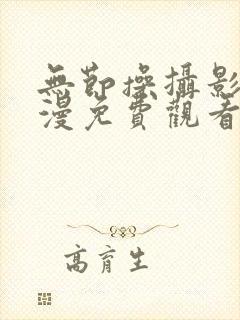 無節操攝影
漫免費觀看
高育生